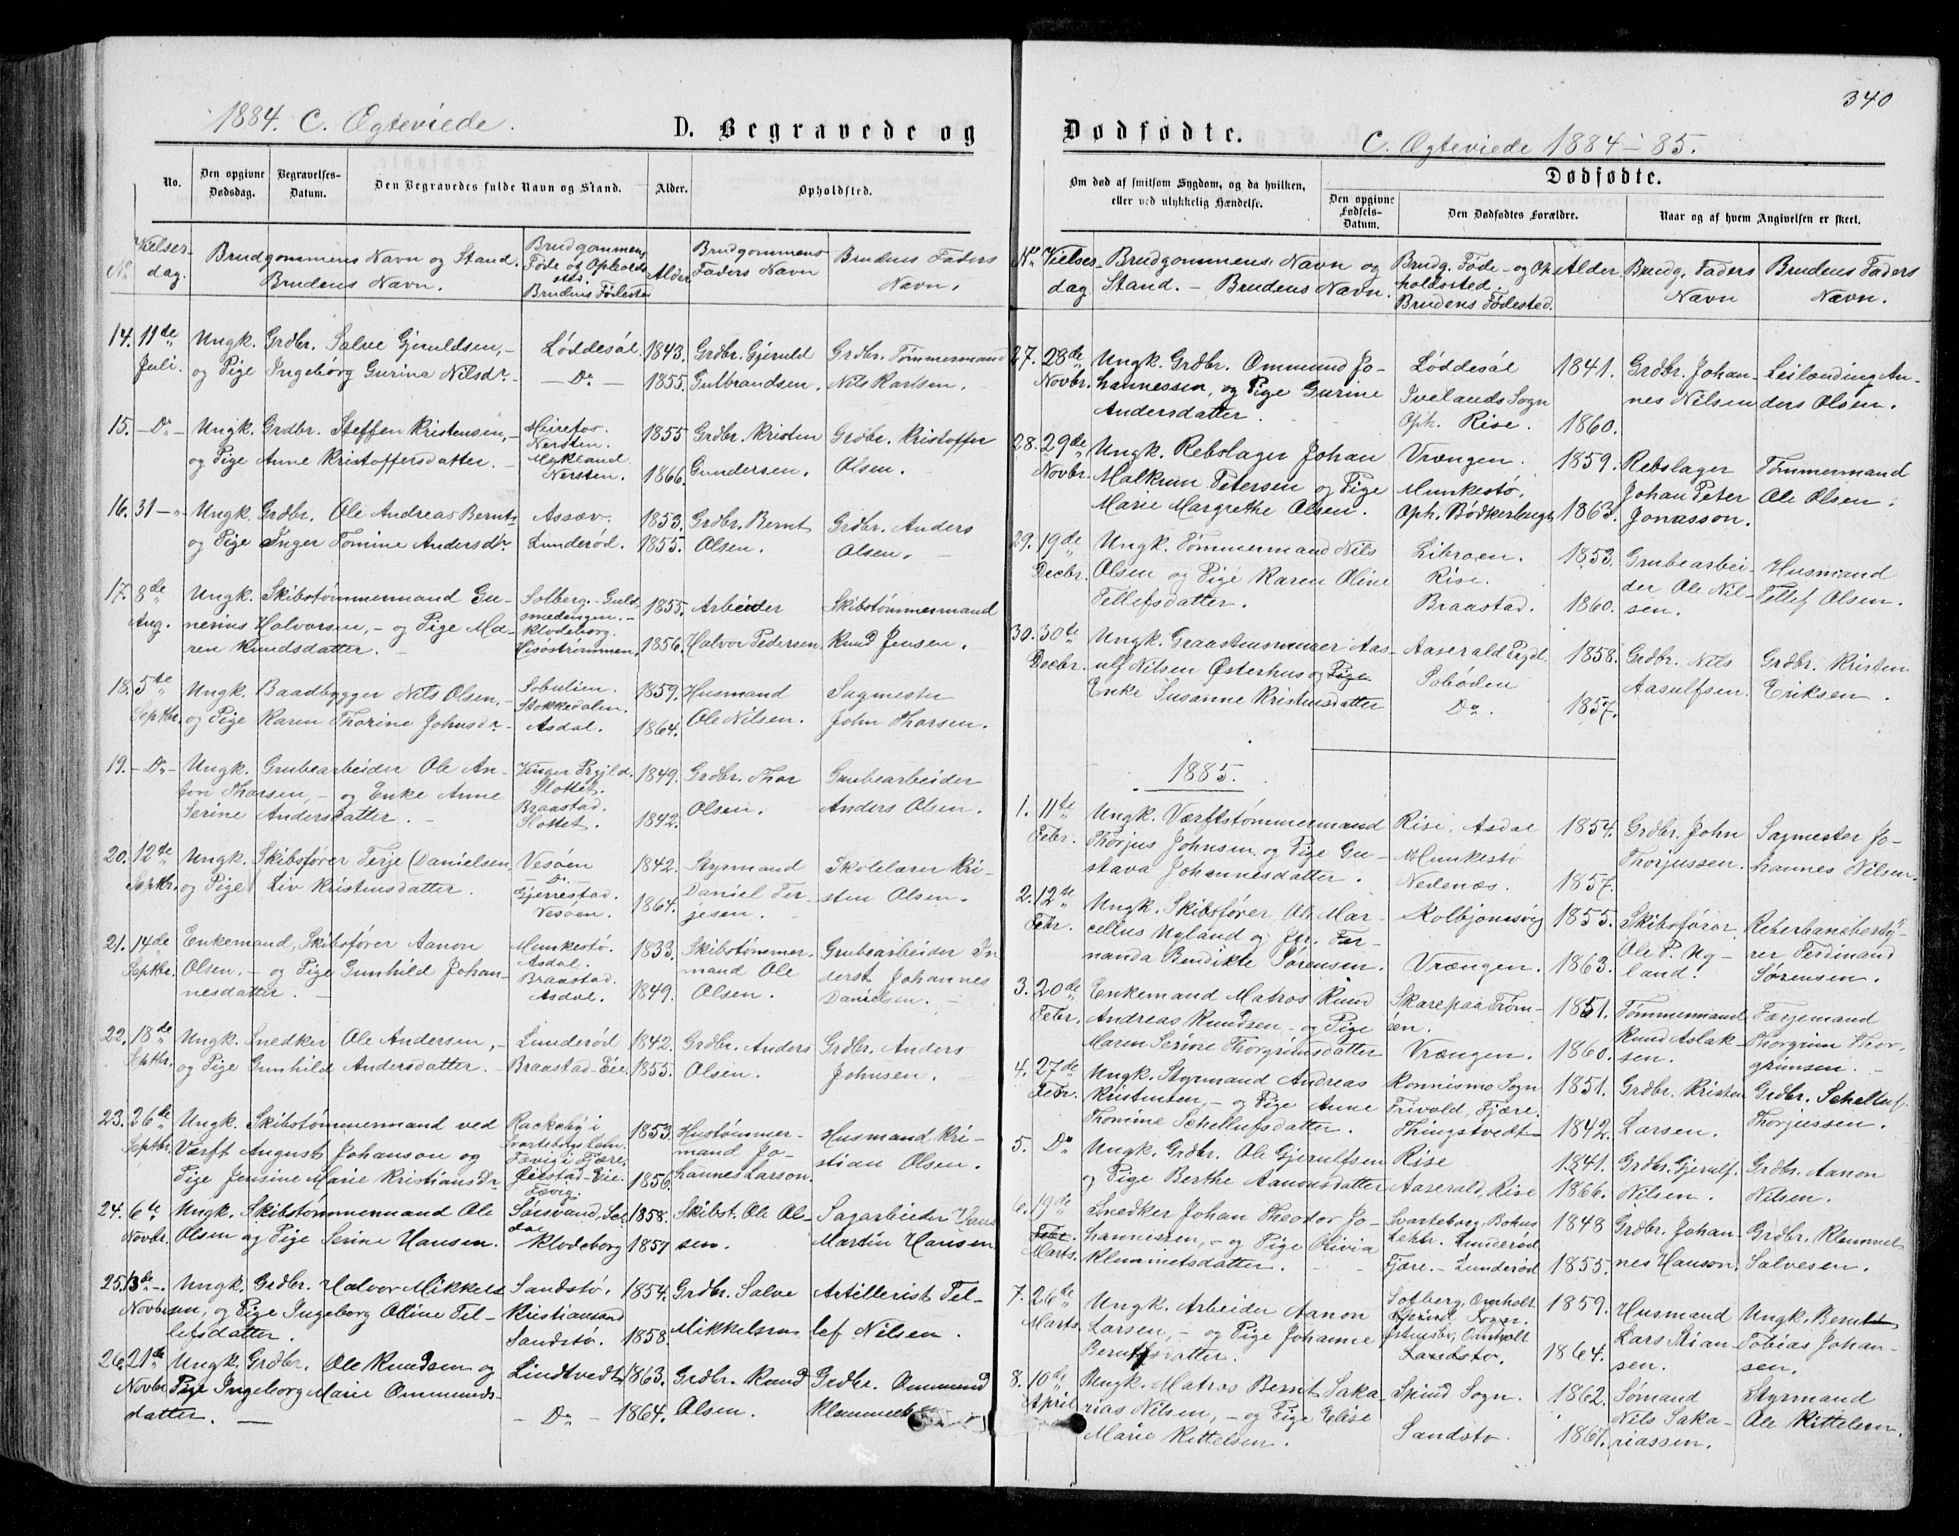 340
1884. C. Ægteviede.
D. Begravede og
Dødfødte.
C. Ægteviede 1884-85.
No.
Den opgivne Dødsdag.
Begravelses-Datum.
Den Begravedes fulde Navn og Stand.
Alder.
Opholdsted.
Om død af smitsom Sygdom, og da hvilken, eller ved ulykkelig Hændelse.
Dødfødte.
Den opgivne Fødsels-Datum.
Den Dødfødtes Forældre.
Naar og af hvem Angivelsen er skeet.
No. Vielses-dag.
Brudgommens Navn og Stand. Brudens Navn.
Brudgommens Føde og Opholds sted. Brudens Fødested
Alder
Brudgommens Faders Navn
Brudens Faders Navn.
14. 11de Juli.
Ungk. Grdbr. Salve Gjeruldsen, -
og Pige Ingeborg Gurine Nilsdr.
Løddesøl.
- Do -
1843.
1855.
Grdbr. Gjeruld
Gulbrandsen.
Grdbr. Tømmermand
Nils Karlsen.
15. - Do -
Ungk. Grdbr. Steffen Kristensen, -
og Pige Anne Kristoffersdatter. -
Nersten.
Mykland
Nersten.
1855
1866.
Grdbr. Kristen
Gundersen.
Grdbr. Kristoffer
Olsen.
16. 31 - " -
Ungk. Grdbr. Ole Andreas Bernts.
og Pige Inger Tomine Andersdr.
Assæv.
Lunderød.
1853.
1855.
Grdbr. Bernt
Olsen.
Grdbr. Anders
Olsen.
17. 8de Aug.
Ungk. Skibstømmermand Gu-
nerius Halvorsen, - og Pige Ma-
ren Knudsdatter. -
Solberg. - Guld
smedengen. -
Klodeborg.
Hisøstrømmen.
1855.
1856.
Arbeider
Halvor Pedersen
Skibstømmermand
Knud Jensen.
18. 5te Septbr.
Ungk. Baadbygger Nils Olsen, -
og Pige Karen Thorine Johnsdr.
Stokkedalen.
Asdal.
1859.
1864.
Husmand
Ole Nilsen.
Sagmester
John Tharsen.
19. - Do -
Ungk. Grubearbeider Ole An-
ton Tharsen, - og Enke Anne
Serine Andersdatter. -
Slottet.
Braastad.
Slottet.
1849.
1842.
Grdbr. Thor
Olsen.
Grubearbeider
Anders Olsen.
20. 12te Septbr.
Ungk. Skibsfører Terje Danielsen,
og Pige Liv Kristensdatter.
Vesøen
- Do -
Gjerrestad.
Vesøen.
1842.
1864.
Styrmand
Daniel Ter-
jesen.
Skolelærer Kri-
sten Olsen.
21. 14de Septbr.
Enkemand, Skibsfører Aanon
Olsen. - og Pige Gunhild Johan-
nesdatter. -
Munkestø.
Asdal.
Braastad.
Asdal.
1833.
1849.
Skibstømmer-
mand Ole
Olsen.
Grubearbeider In
derst Johannes
Danielsen. -
22. 18de Septbr.
Ungk. Snedker Ole Andersen, -
og Pige Gunhild Andersdatter. -
Lunderød
Braastad-Eie
1842.
1855.
Grdbr. Anders
Olsen.
Grdbr. Anders
Johnsen.
23. 26de Septbr.
Ungk. Skibstømmermand ved
Værft August Johanson og
Pige Jensine Marie Kristiansdr
Fævig i Fjære.
Fævig.
1853.
1856.
Hustømmer-
mand Jo-
hannes Larson.
Husmand Kri-
stian Olsen.
24. 6te Novbr.
Ungk. Skibstømmermand Ole
Olsen og Pige Serine Hansen.
Klodeborg
1858.
1857
Skibst. Ole Ol-
sen.
Sagarbeider Hans
Martin Hansen
25. 13de - Novbr.
Ungk. Grdbr. Halvor Mikkel
sen, og Pige Ingeborg Olline Tel-
lefsdatter.
Sandstø.
Kristiansand
Sandstø.
1854.
1858.
Grdbr. Salve
Mikkelsen
Artillerist Tel-
lef Nilsen.
26. 21de Novbr.
Ungk. Grdbr. Ole Knudsen og
Pige Ingeborg Marie Ommunds-
datter. -
Lindtvedt.
- Do -
1863.
1864.
Grdbr. Knud
Olsen.
Grdbr. Ommund
No. Vielses-dag
Brudgommens Navn og Stand. - Brudens Navn.
Brudg. Føde- og Op holdssted. Brudens Fødested.
Alder.
Brudg. Faders Navn
Brudens Faders Navn.
27. 28de Novbr.
Ungk. Grdbr. Ommund Jo-
hannessen, og Pige Gurine
Andersdatter.
Løddesøl
Ivelands Sogn
Oph. Rise.
1841.
1860.
Grdbr. Johan-
nes Nilsen
Leilænding An-
ders Olsen.
28. 29de Novbr.
Ungk. Rebslager Johan
Malkrum Petersen og Pige
Marie Margrethe Olsen.
Vrængen.
Munkestø.
Oph. Bødkerbugt
1859.
1863.
Rebslager
Johan Peter
Jonasson.
Tømmermand
Ole Olsen.
29. 19de Decbr.
Ungk. Tømmermand Nils
Olsen og Pige Karen Oline
Tellefsdatter.
Libroen.
Rise.
Braastad.
1853.
1860.
Grubearbei-
der Ole Nil-
sen.
Husmand
Tellef Olsen.
30. 30te Decbr.
Ungk. Graastensmurer Aas-
ulf Nilsen Østerhus og Pige
Enke Susanne Kristensdatter
Aaserald Prgd.
Sobøden
Do.
1858.
1857.
Grdbr. Nils
Aasulfsen.
Grdbr. Kristen
Eriksen.
1885.
1. 11te Febr.
Ungk. Værftstømmermand
Thorjus Johnsen og Pige Gu-
stava Johannesdatter.
Rise, Asdal
Munkestø
Nedenæs.
1854.
1857.
Grdbr. John
Thorjussen.
Sagmester Jo-
hannes Nilsen.
2. 12te Febr.
Ungk. Skibsfører Ole Mar-
cellius Ugland og Jfr. Fer-
nanda Bendikte Sørensen.
Kolbjønsvig
Vrængen.
1855.
1863.
Skibsfører
Ole P. Ug-
land.
Reberbanebesty-
rer Ferdinand
Sørensen.
3. 20de Febr.
Enkemand Matros Knud
Andreas Knudsen - og Pige
Maren Serine Thorgrimsdatter
Skare paa Trom-
øen.
Vrængen.
1851.
1860.
Tømmermand
Knud Aslak-
sen.
Færjemand
Thorgrim Thor-
grimsen. -
4. 27de Febr.
Ungk. Styrmand Andreas
Kristensen, - og Pige Anne
Thomine Schellufsdatter.
Sogn
Frivold, Fjære.
Thingstvedt
1851.
1842.
Grdbr. Kristen
Larsen.
Grdbr. Schelluf
Thorjussen.
5. Do
Ungk. Grdbr. Ole Gjerulfsen
og Pige Berthe Aanonsdatter
Rise
Aaserald, Rise
1841.
1866.
Grdbr. Gjerulf
Nilsen.
Grdbr. Aanon
Nilsen.
6. 19de Febr. Marts.
Snedker Johan Theodor Jo-
hannessen, - og Pige Olivia
Klemmetsdatter.
Svarteborg, Bohus
Lehn. Lunderød
Fjære. - Lunderød
1848
1855.
Grdbr. Johan
nes Hanson.
Grdbr. Klemmet
Salvesen.
7. 26de Marts.
Ungk. Arbeider Aanon
Larsen, - og Pige Johanne
Berntsdatter.
Solberg, Omholt
Sandstø.
1859.
1864.
Husmand
Lars Stian-
sen.
Ungk. Bernt
Tobias Johan-
sen.
8. 10de April
Ungk. Matros Bernt Saka-
rias Nilsen, - og Pige Elise
Marie Kittelsen.
Spind Sogn.
Sandstø.
1862.
1867.
Sømand
Nils Saka-
riassen.
Styrmand
Ole Kittelsen.